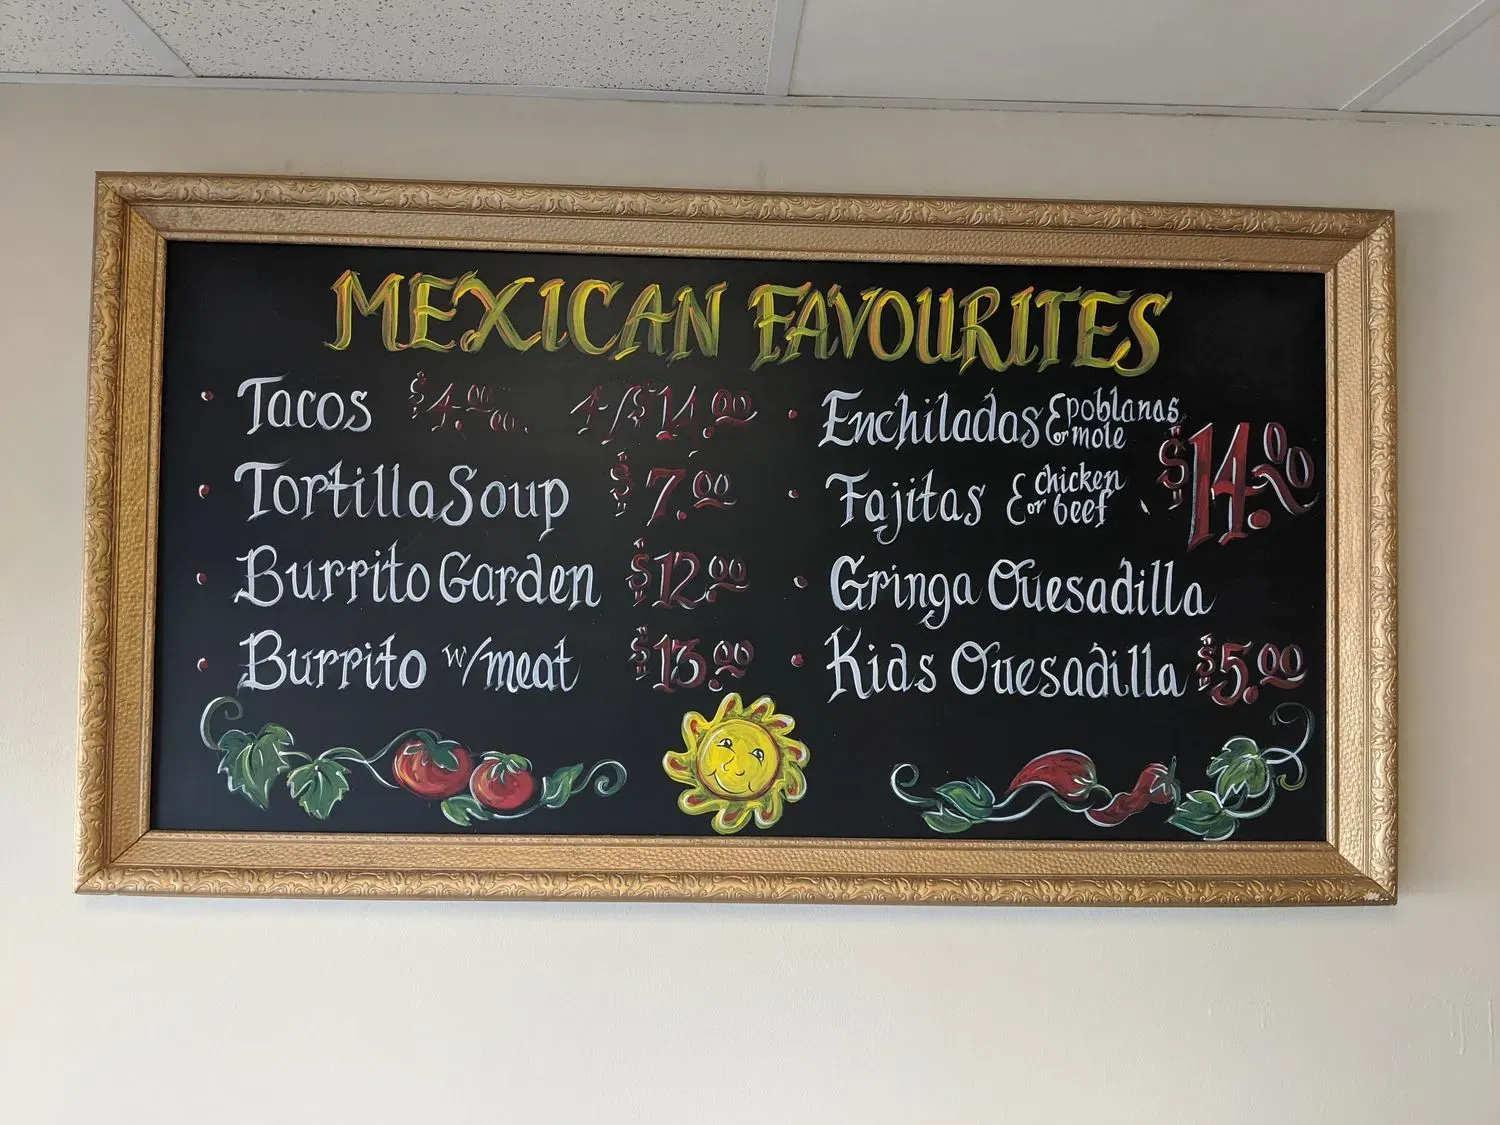 MEXICAN FAVOURITES
• Tacos $4.00 ea. 4/$14.00
• Tortilla Soup $7.00
• Burrito Garden $12.00
• Burrito w/meat $13.00
• Enchiladas { poblanas
or mole
• Fajitas { chicken
or beef
$14.00
• Gringa Quesadilla
• Kids Quesadilla $5.00